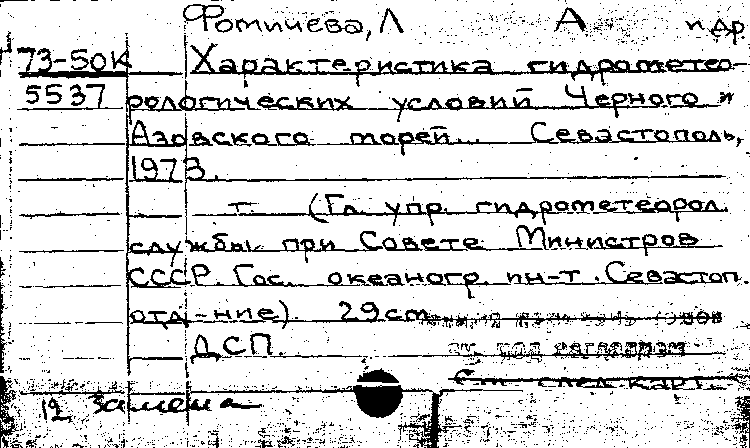 Фомичева, Л А и др.
73-50К Характеристика гидрометео-
5537 рологических условий Черного и
Азовского морей... Севастополь,
1973.
т. (Гл. упр. гидрометеорол.
службы при Совете Министров
СССР. Гос. океаногр. ин-т. Севастоп.
отд-ние). 29см
ДСП. под заглавием
См. след. карт.
12 Замена